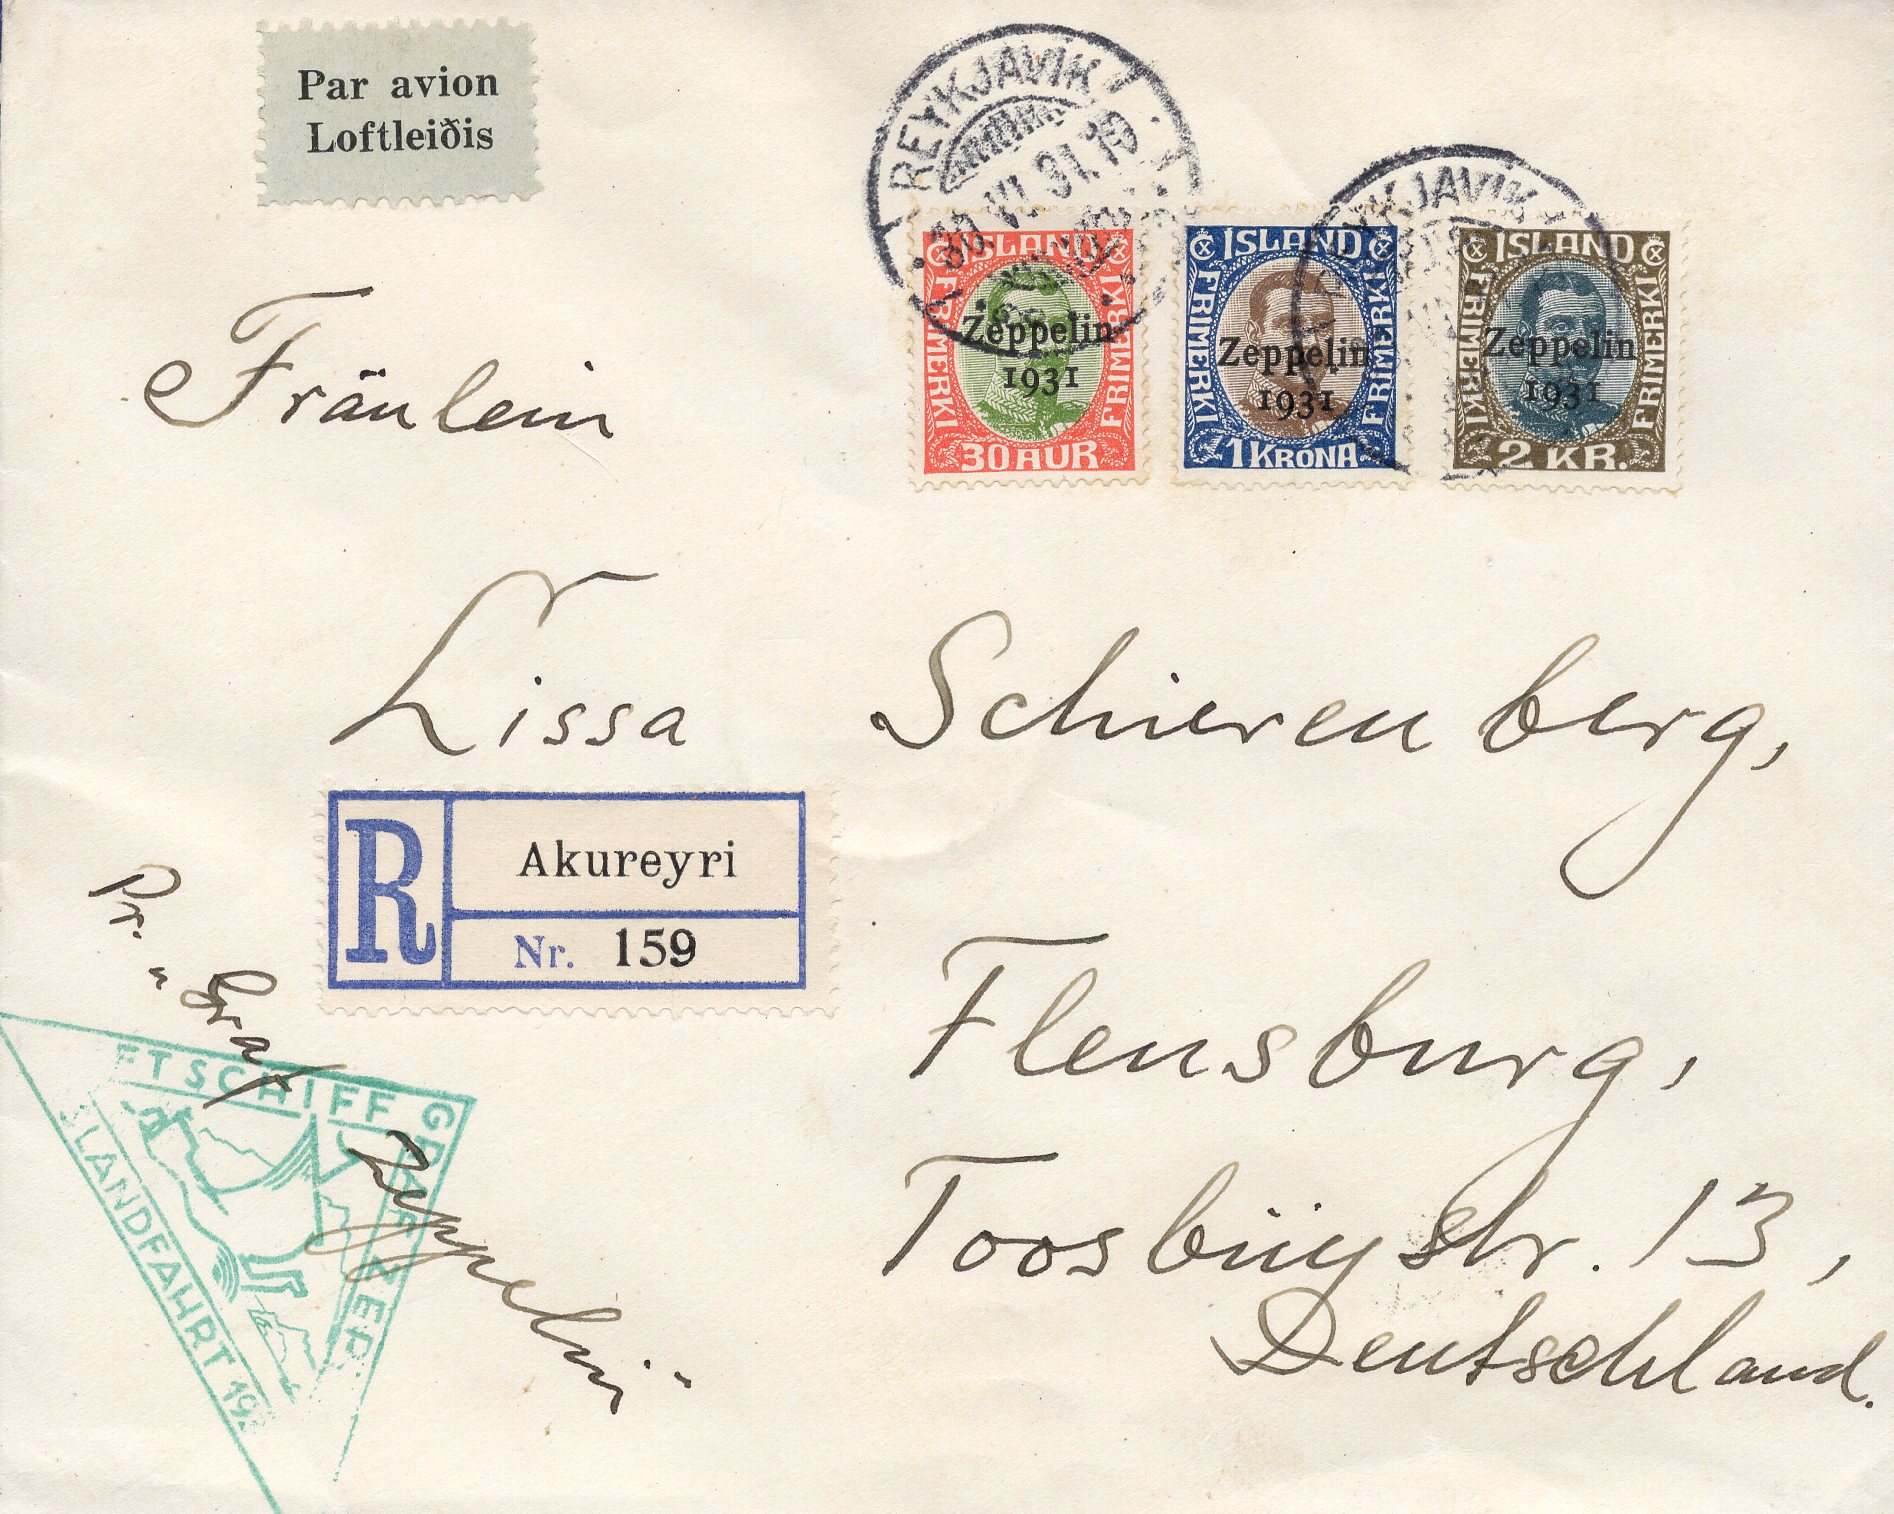 Par avion
Loftleiðis
REYKJAVIK
30.VI.31.19
REYKJAVIK
ÍSLAND
FRIMERKI
FRIMERKI
Zeppelin
1931
30 AUR
ÍSLAND
FRIMERKI
FRIMERKI
Zeppelin
1931
1 KRÓNA
ÍSLAND
FRIMERKI
FRIMERKI
Zeppelin
1931
2 KR.
Fräulein
Lissa Schierenberg,
R
Akureyri
Nr. 159
Flensburg,
Toosbüystr. 13,
Deutschland.
Pr. "Graf Zeppelin"
FTSCHIFF GRAF ZEP
SLANDFAHRT 19